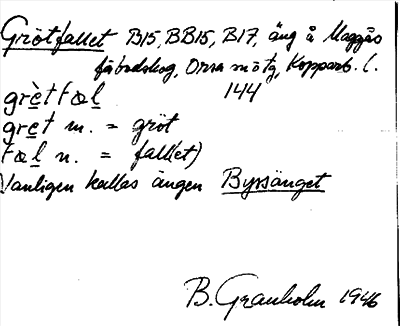 Grötfallet B15, BB15, B17, äng å Maggås
fäbodskog, Orsa mötg, Kopparb. l.
grètfæl 144
gret m. = gröt
fæl n. = fall(et)
Vanligen kallas ängen Byrsänget
B. Granholm 1946